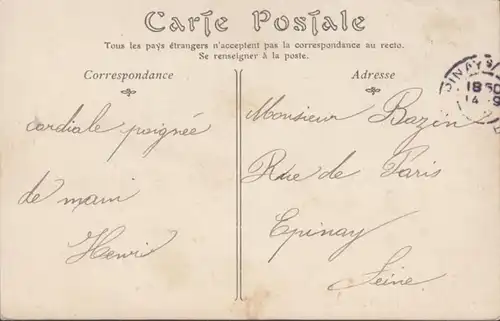 Carte Postale
Tous les pays étrangers n'acceptent pas la correspondance au recto.
Se renseigner à la poste.
Correspondance
cordiale poignée
de main
Henri
Adresse
Monsieur Bazin
Rue de Paris
Epinay
Seine
PINAY S/
18 50
14 - 9